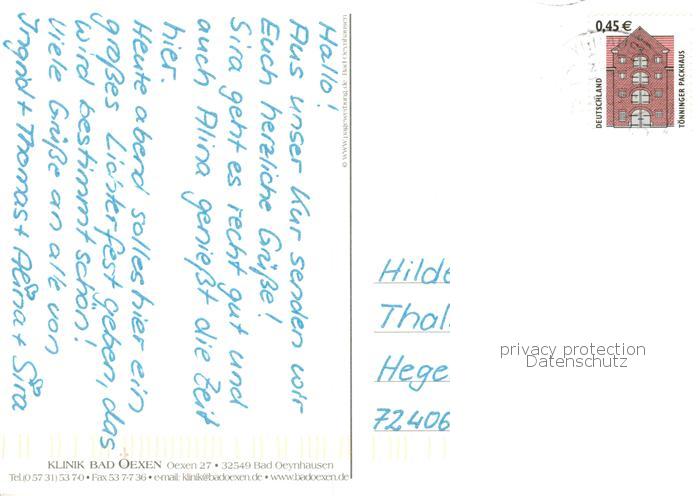 Hallo!
Aus unser Kur senden wir
Euch herzliche Grüße!
Sira geht es recht gut und
auch Alina genießt die Zeit
hier.
Heute abend soll es hier ein
großes Lichterfest geben, das
wird bestimmt schön!
Viele Grüße an alle von
Ingrid + Thomas + Alina + Sira
© www.pagewerbung.de Bad Oeynhausen
0,45 €
DEUTSCHLAND
TÖNNINGER PACKHAUS
Hilde
Thal
Hege
72406
privacy protection
Datenschutz
KLINIK BAD OEXEN Oexen 27 • 32549 Bad Oeynhausen
Tel.(0 57 31) 53 7-0 • Fax 53 7-7 36 • e-mail: klinik@badoexen.de • www.badoexen.de